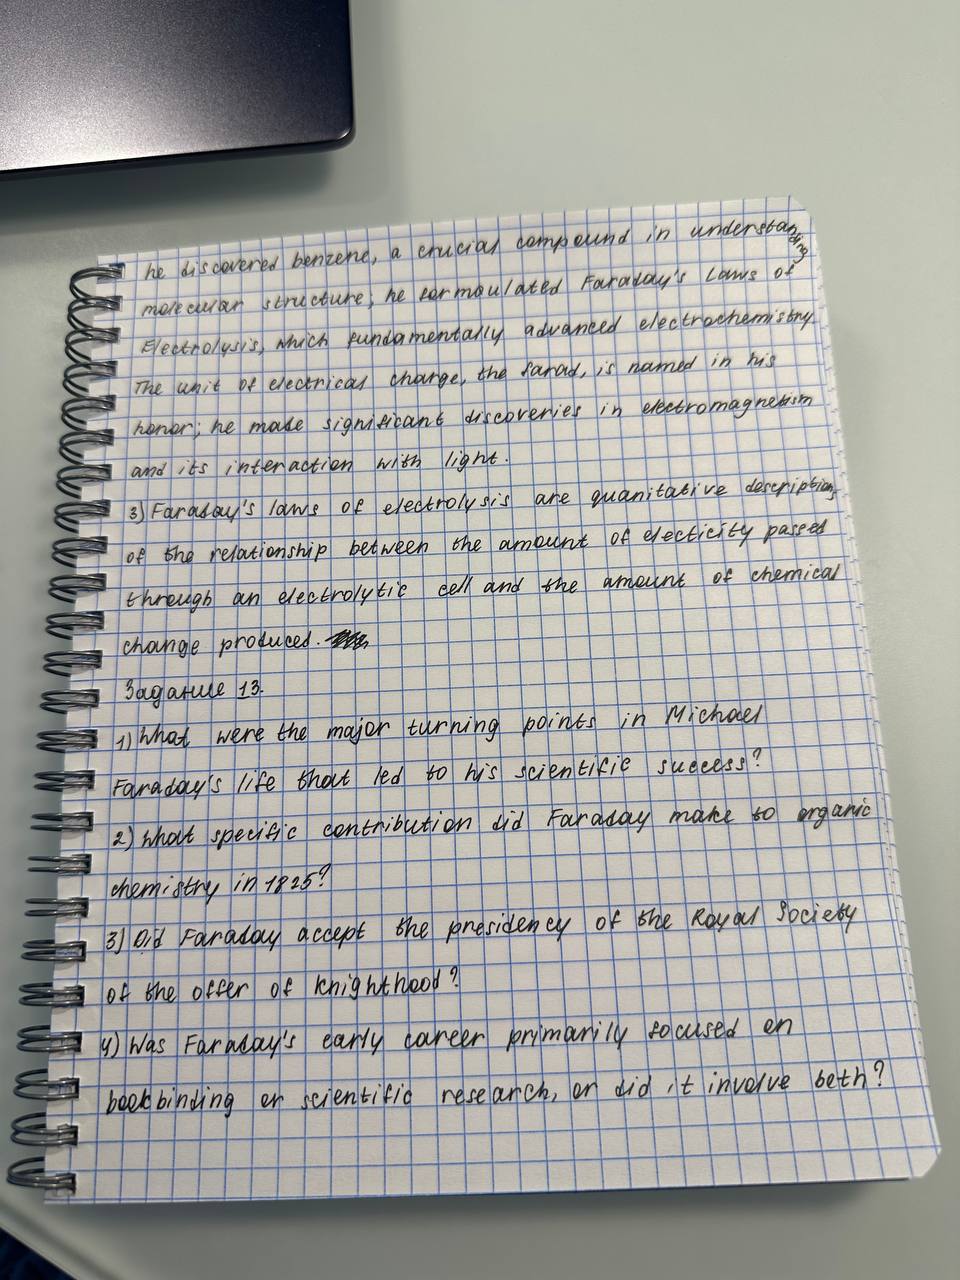 he discovered benzene, a crucial compound in understanding
molecular structure; he formoulated Faraday's Laws of
Electrolysis, which fundamentally advanced electrochemistry.
The unit of electrical charge, the farad, is named in his
honor; he made significant discoveries in electromagnetism
and its interaction with light.
3) Faraday's laws of electrolysis are quanitative descriptions
of the relationship between the amount of electicity passed
through an electrolytic cell and the amount of chemical
change produced.
Задание 13.
1) What were the major turning points in Michael
Faraday's life that led to his scientific success?
2) What specific contribution did Faraday make to organic
chemistry in 1825?
3) Did Faraday accept the presidency of the Royal Society
of the offer of knighthood?
4) Was Faraday's early career primarily focused on
bookbinding or scientific research, or did it involve both?